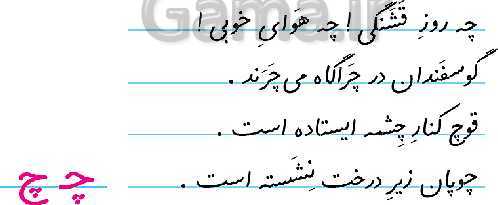 Gama.ir
چه روزِ قَشَنگی ! چه هَوایِ خوبی !
گوسفَندان در چَراگاه می چَرَند .
قوچ کنارِ چِشمه ایستاده است .
چوپان زیرِ درخت نِشَسته است .
چـ چ